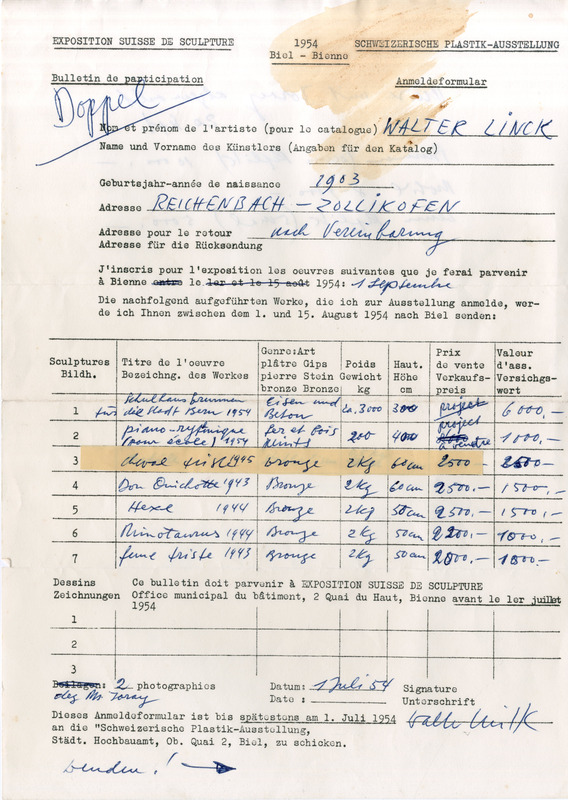 EXPOSITION SUISSE DE SCULPTURE 1954 SCHWEIZERISCHE PLASTIK-AUSSTELLUNG
Biel - Bienne
Bulletin de participation Anmeldeformular
Doppel
Nom et prénom de l'artiste (pour le catalogue) WALTER LINCK
Name und Vorname des Künstlers (Angaben für den Katalog)
Geburtsjahr-année de naissance 1903
Adresse REICHENBACH - ZOLLIKOFEN
Adresse pour le retour nach Vereinbarung
Adresse für die Rücksendung
J'inscris pour l'exposition les oeuvres suivantes que je ferai parvenir
à Bienne entre le 1er et le 15 août 1954: 1 Septembre
Die nachfolgend aufgeführten Werke, die ich zur Ausstellung anmelde, wer-
de ich Ihnen zwischen dem 1. und 15. August 1954 nach Biel senden:
Sculptures Bildh. Titre de l'oeuvre Bezeichng. des Werkes Genre:Art plâtre Gips pierre Stein bronze Bronze Poids Gewicht kg Haut. Höhe cm Prix de vente Verkaufs- preis Valeur d'ass. Versichgs- wert
1 für Schulhausbrunnen die Stadt Bern 1954 Eisen und Beton ca. 3000 300 project 6000.-
2 piano-rythmique (pour école) 1954 fer et bois 200 400 project à vendre 1000.-
3 cheval triste 1945 bronze 2kg 60cm 2500 2500.-
4 Don Quichotte 1943 Bronze 2kg 60cm 2500.- 1500.-
5 Hexe 1944 Bronze 2kg 50cm 2500.- 1500.-
6 Minotaurus 1944 Bronze 2kg 50cm 2200.- 1000.-
7 feme triste 1943 Bronze 2kg 50cm 2000.- 1000.-
Dessins Ce bulletin doit parvenir à EXPOSITION SUISSE DE SCULPTURE
Zeichnungen Office municipal du bâtiment, 2 Quai du Haut, Bienne avant le 1er juillet
1954
1
2
3
Beilagen: 2 photographies Datum: 1 Juli 54 Signature
Date : Unterschrift
Dieses Anmeldeformular ist bis spätestens am 1. Juli 1954
an die "Schweizerische Plastik-Ausstellung,
Städt. Hochbauamt, Ob. Quai 2, Biel, zu schicken.
wenden!